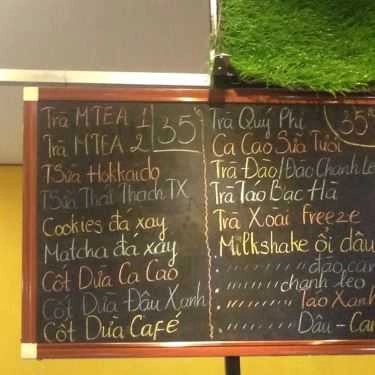 Trà MTEA 1
Trà MTEA 2
35
TSữa Hokkaido
TSữa Thái Thạch TX
Cookies đá xay
Matcha đá xay
Cốt Dừa Ca Cao
Cốt Dừa Đậu Xanh
Cốt Dừa Café
Trà Quý Phi
35
Ca Cao Sữa Tươi
Trà Đào/Đào Chanh Le
Trà Táo Bạc Hà
Trà Xoài Freeze
Milkshake ổi dâu
" đào cam
" chanh leo
" Táo Xanh
" Dâu - Cam